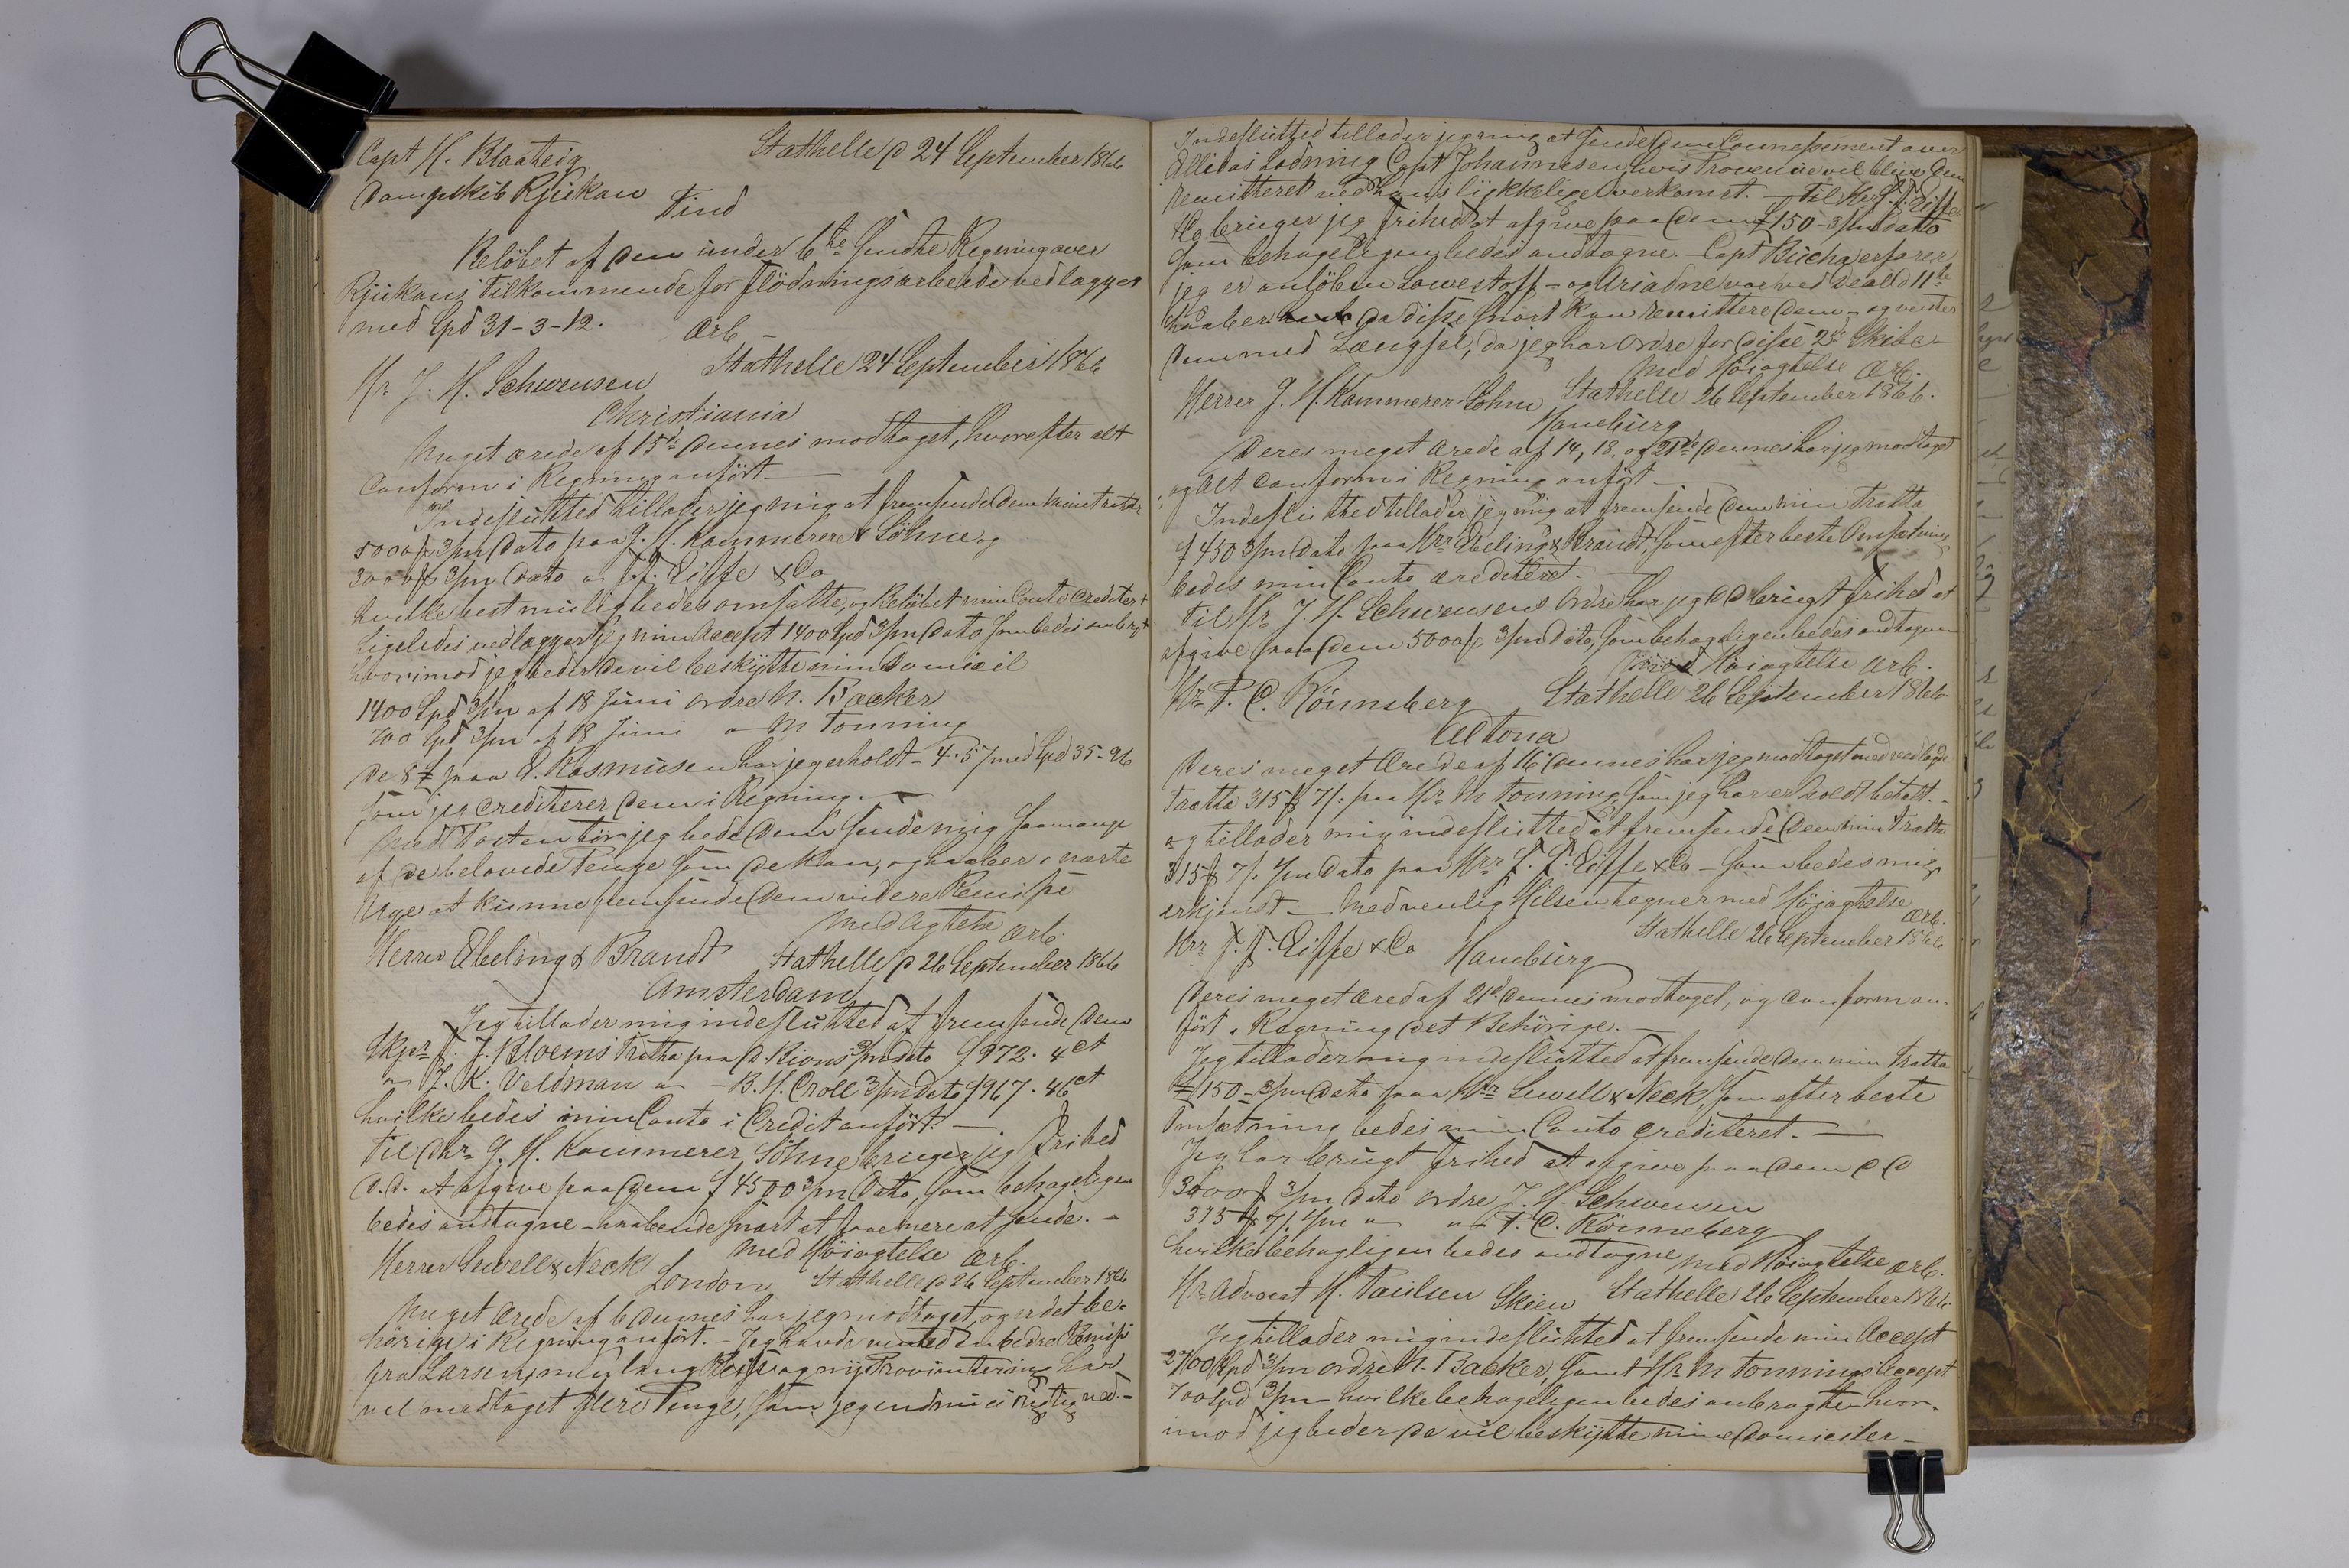 Capt H. Blaaheig Stathelle D 24 September 1866
Dampskib Rjukan
Tind
Beløbet af Dem under 6te sendte Regning over
Rjukans Tilkommende for flödningsarbeide vedlægges
med Spd 31-3-12. ærb
Hr. J. H. Schwensen Stathelle 24 September 1866
Christiania
Meget ærede af 15de dennes modtaget, hvorefter alt
conform i Regning anført.
Indesluttted tillader jeg mig at fremsende Dem mine tratter
5000 3/m Dato paa J. H. Kammerer & Söhne og
3000 3/m Dato " J. F. Eiffe & Co
hvilke best mulig bedes omsatte, og Beløbet min Conto crediteret
Ligeledes vedlægger jeg min Accept 1400 Spd 3/m Dato som bedes anbragt
hvorimod jeg beder De vil beskytte min Domicil
1400 Spd 3/m af 18 Juni ordre N. Backer
700 Spd 3/m af 18 Juni " M Tonning
De 8 £ paa E. Rasmusen har jeg erholdt - 4.57 med Spd 35-96
som jeg crediterer Dem i Regning.
Med Posten tör jeg bede Dem sende mig saamange
af de belovede Penge som De kan, og haaber i næste
Uge at kunne fremsende Dem videre Remisse
Med Agtelse ærb.
Herrer Ebeling & Brandt Stathelle D 26 September 1866
Amsterdam
Jeg tillader mig indesluttted at fremsende Dem
Skpr F. J. Bloems Tratta paa D. Rions 3/m dato f 972. 4 ct
" J. K. Veldman " - B. H. Croll 3/m Dato f 967. 46 ct
hvilke bedes min Conto i Credit anført.
Til Dhr. J. H. Kammerer Söhne bruger jeg Frihed
D.D. at afgive paa Dem f 4500 3/m Dato, som behageligen
bedes antagne - haabende snart at faae mere at sende. -
Med Höiagtelse ærb.
Herrer Sewell & Neck London Stathelle D 26 September 1866
Meget ærede af 6 dennes har jeg modtaget, og er det be-
hörige i Regning anført. - Jeg havde ventet en bedre Remisse
fra Larsen, men lang Reise og ny Proviantering har
vel modtaget flere Penge, som jeg endnu ei rigtig ved. -
Indesluttted tillader jeg mig at sende Dem Connossement over
Ellidas Ladning Capt Johannesen, hvis Provenue vil blive Dem
remitteret ved hans lykkelige overkomst. - Til Hrr J. F. Eiffe
& Co bruger jeg Frihed at afgive paa Dem £ 150 - 3/m Dato
som behageligen bedes antagne. - Capt Bücha erfarer
jeg er anlöben Lowestoff - og Ariadne var ved Deal D 11te
haaber da disse snart kan remittere Dem - og venter
Dem med Længsel, da jeg har Ordre for disse 2de Skibe -
Med Höiagtelse ærb.
Herrer J. H. Kammerer Söhne Stathelle 26 September 1866.
Hamburg
Deres meget ærede af 14, 18, og 21de dennes har jeg modtaget
og alt conform i Regning anført -
Indesluttted tillader jeg mig at fremsende Dem min Tratta
f 450 3/m Dato paa Hrr Ebeling & Brandt, som efter beste Omsætning
bedes min Conto crediteret. -
Til Hr J. H. Schwensens Ordre har jeg DD brugt Frihed at
afgive paa Dem 5000 3/m Dato, som behageligen bedes antagne
Med Höiagtelse ærb.
Hr P. C. Rönnsberg Stathelle 26 September 1866
Altona
Deres meget ærede af 16 dennes har jeg modtaget med vedlagte
Tratta 315 7/. paa Hr M Tonning, som jeg har erholdt betalt. -
og tillader mig indesluttted at fremsende Dem min Tratta
315 7/. 4/m Dato paa Hrr J. F. Eiffe & Co - som bedes mig
erkjendt - Med venlig Hilsen tegner med Höjagtelse
ærb.
Hrr J. F. Eiffe & Co Hamburg Stathelle 26 September 1866
Deres meget æred af 21de dennes modtaget, og conform an-
fört i Regning det Behörige. -
Jeg tillader mig indesluttted at fremsende Dem min Tratta
£ 150 - 3/m Dato paa Hrr Sewell & Neck, som efter beste
Omsætning bedes min Conto crediteret. -
Jeg har brugt Frihed at afgive paa Dem D D
3000 3/m Dato ordre J. H. Schwensen
315 7/. 4/m " " P. C. Rönneberg
hvilke behageligen bedes antagne Med Höiagtelse ærb.
Hr Advocat H. Paulsen Skien Stathelle 26 September 1866.
Jeg tillader mig indesluttted at fremsende min Accept
2700 Spd 3/m ordre N. Backer, samt Hr M Tonnings Accept
700 Spd 3/m - hvilke behageligen bedes anbragte hvor-
imod jeg beder De vil beskytte mine Domiciler -